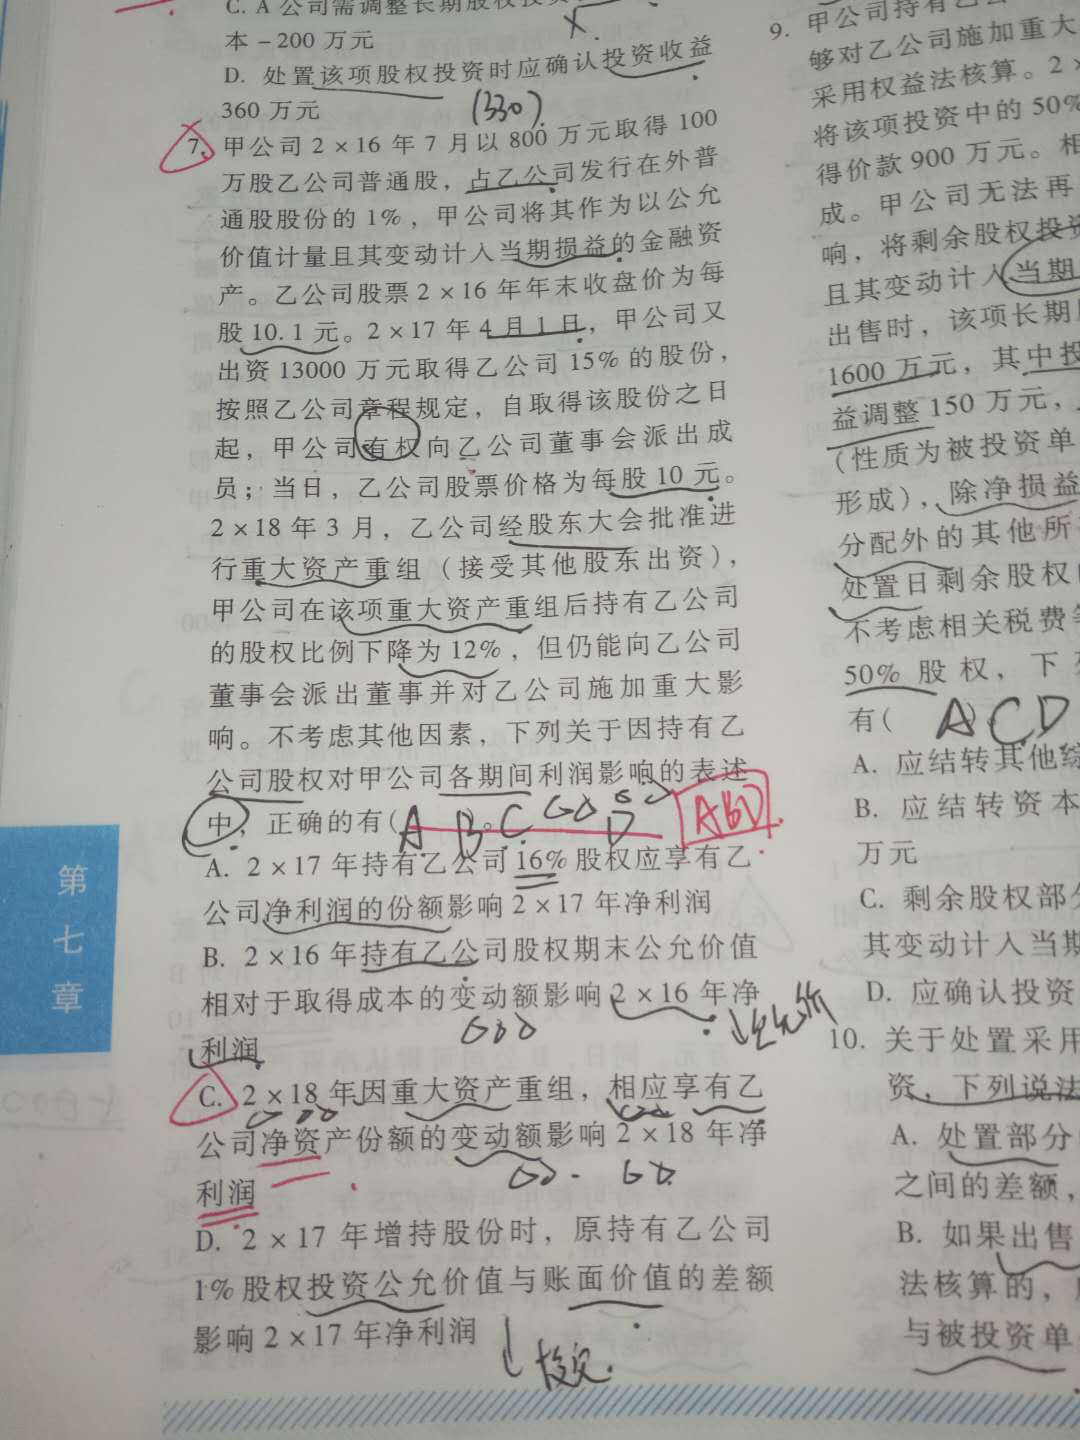 C. A 公司需调整长期股权投资
本 -200 万元
D. 处置该项股权投资时应确认投资收益
360 万元
(330)
7. 甲公司 2×16 年 7 月以 800 万元取得 100
万股乙公司普通股，占乙公司发行在外普
通股股份的 1%，甲公司将其作为以公允
价值计量且其变动计入当期损益的金融资
产。乙公司股票 2×16 年年末收盘价为每
股 10.1 元。2×17 年 4 月 1 日，甲公司又
出资 13000 万元取得乙公司 15% 的股份，
按照乙公司章程规定，自取得该股份之日
起，甲公司有权向乙公司董事会派出成
员；当日，乙公司股票价格为每股 10 元。
2×18 年 3 月，乙公司经股东大会批准进
行重大资产重组（接受其他股东出资），
甲公司在该项重大资产重组后持有乙公司
的股权比例下降为 12%，但仍能向乙公司
董事会派出董事并对乙公司施加重大影
响。不考虑其他因素，下列关于因持有乙
公司股权对甲公司各期间利润影响的表述
中，正确的有( )。
A B C D
ABD
A. 2×17 年持有乙公司 16% 股权应享有乙
公司净利润的份额影响 2×17 年净利润
B. 2×16 年持有乙公司股权期末公允价值
相对于取得成本的变动额影响 2×16 年净
利润
C. 2×18 年因重大资产重组，相应享有乙
公司净资产份额的变动额影响 2×18 年净
利润
D. 2×17 年增持股份时，原持有乙公司
1% 股权投资公允价值与账面价值的差额
影响 2×17 年净利润
第
七
章
9. 甲公司持有乙公
够对乙公司施加重大
采用权益法核算。2×
将该项投资中的 50%
得价款 900 万元。相
成。甲公司无法再
响，将剩余股权投资
且其变动计入当期
出售时，该项长期
1600 万元，其中投
益调整 150 万元，
（性质为被投资单
形成），除净损益
分配外的其他所
处置日剩余股权
不考虑相关税费等
50% 股权，下列
有(
ACD
A. 应结转其他综
B. 应结转资本
万元
C. 剩余股权部分
其变动计入当期
D. 应确认投资
10. 关于处置采用
资，下列说法
A. 处置部分
之间的差额，
B. 如果出售
法核算的，
与被投资单